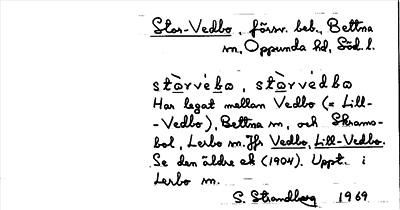 Stor-Vedbo, försv. beb., Bettna
sn, Oppunda hd, Söd. l.
stòrvébo, stòrvédbo
Har legat mellan Vedbo (= Lill-
-Vedbo), Bettna sn, och Skrams-
bol, Lerbo sn. Jfr Vedbo, Lill-Vedbo.
Se den äldre ek (1904). Uppt. i
Lerbo sn.
S. Strandberg 1969